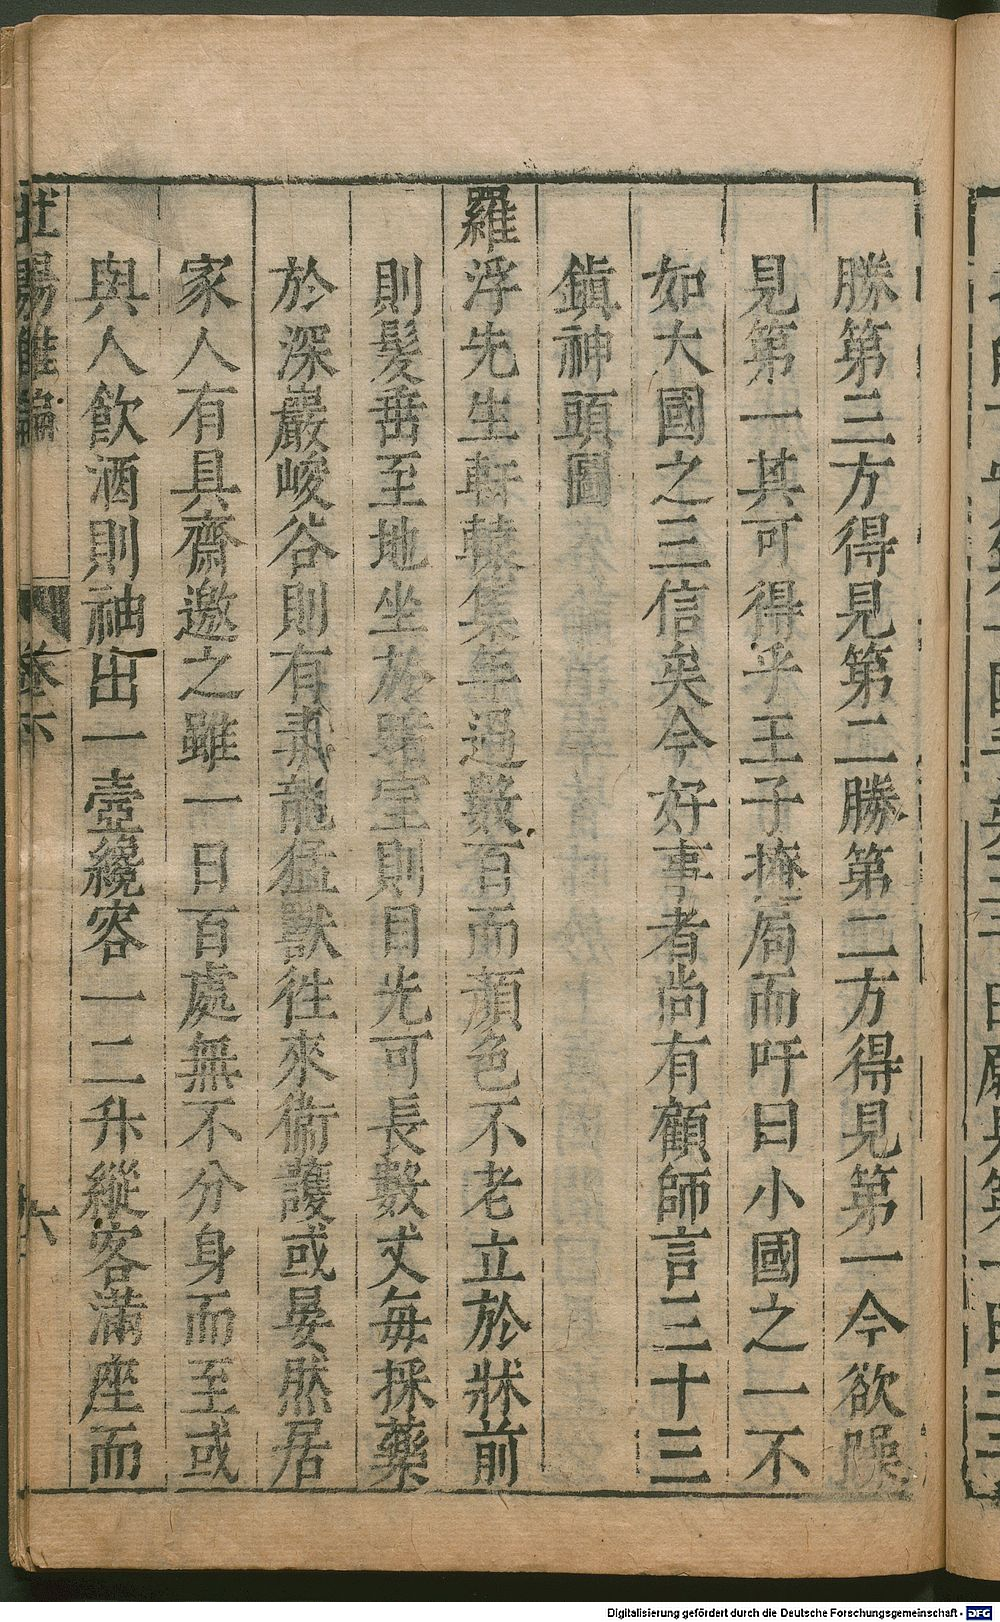 勝第三方得見第二勝第二方得見第一今欲躁
見第一其可得乎王子掩局而吁曰小國之一不
如大國之三信矣今好事者尚有顧師言三十三
鎭神頭圖
羅浮先生軒轅集年過數百而顏色不老立於牀前
則髮垂至地坐於暗室則目光可長數丈每採藥
於深巖峻谷則有毒龍猛獸徃來衞護或晏然居
家人有具齋邀之雖一日百處無不分身而至或
與人飮酒則袖出一壺纔容一二升縱客滿座而
杜陽雜編
卷下
六
Digitalisierung gefördert durch die Deutsche Forschungsgemeinschaft - DFG